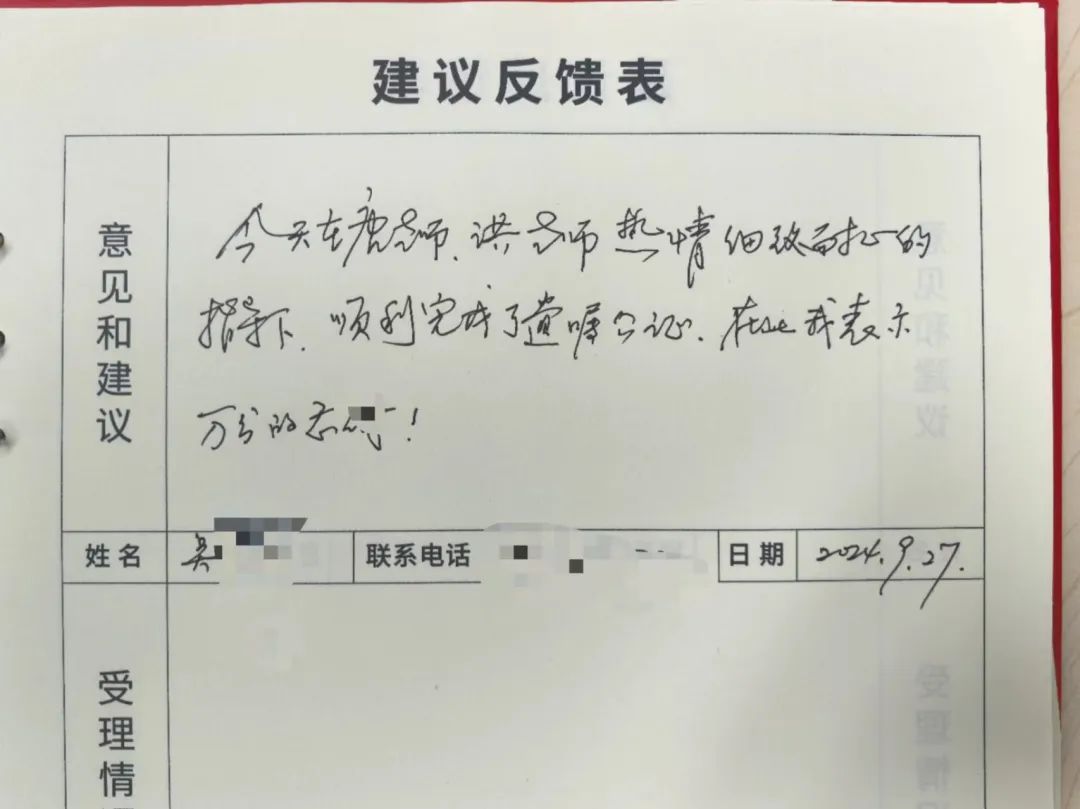 建议反馈表
意见和建议
今天在唐老师、洪老师热情细致耐心的
指导下，顺利完成了遗嘱公证、在此我表示
万分的感谢！
姓名 吴 联系电话 日期 2024.9.27.
受理情